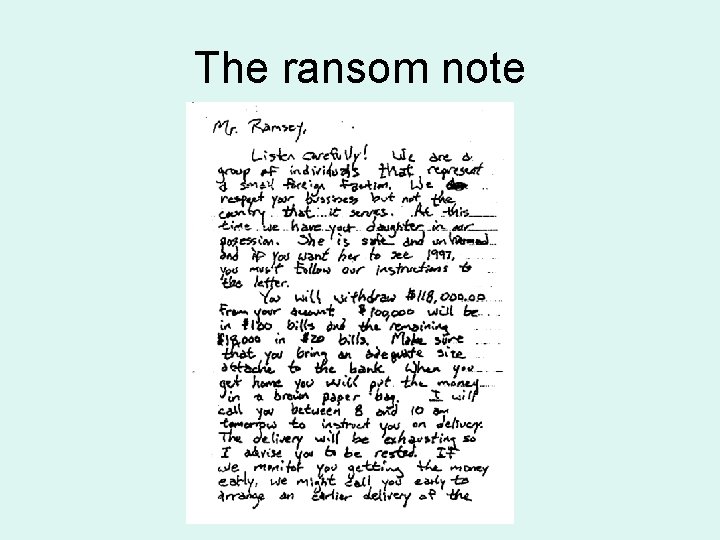 The ransom note
Mr. Ramsey,
Listen carefully! We are a
group of individuals that represent
a small foreign faction. We
respect your bussiness but not the
country that it serves. At this
time we have your daughter in our
posession. She is safe and unharmed
and if you want her to see 1997,
you must follow our instructions to
the letter.
You will withdraw $118,000.00
from your account. $100,000 will be
in $100 bills and the remaining
$18,000 in $20 bills. Make sure
that you bring an adequate size
attache to the bank. When you
get home you will put the money
in a brown paper bag. I will
call you between 8 and 10 am
tomorrow to instruct you on delivery.
The delivery will be exhausting so
I advise you to be rested. If
we monitor you getting the money
early, we might call you early to
arrange an earlier delivery of the